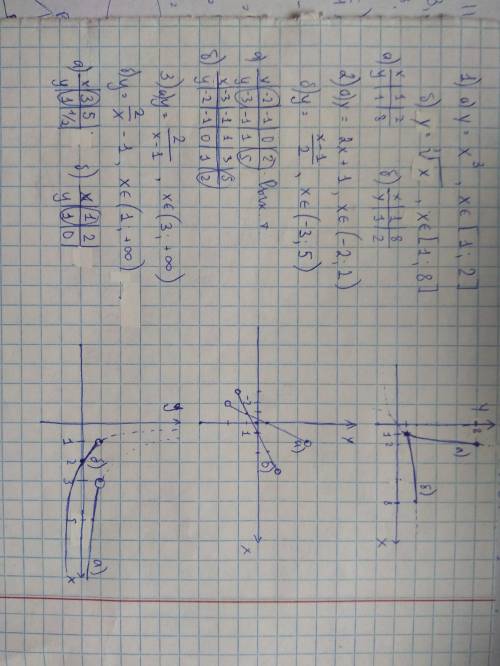 1) a) y = x³, x∈[1;2]
б) y = ∛x, x∈[1;8]
a) x | 1 | 2
y | 1 | 8
б) x | 1 | 8
y | 1 | 2
2) a) y = 2x+1, x∈(-2;2)
б) y = x-1/2, x∈(-3;5)
a) x | -2 | -1 | 0 | 2
y | -3 | -1 | 1 | 5
б) x | -3 | -1 | 1 | 3 | 5
y | -2 | -1 | 0 | 1 | 2
3) a) y = 2/x-1, x∈(3;+∞)
б) y = 2/x -1, x∈(1,+∞)
a) x | 3 | 5
y | 1 | 1/2
б) x | 1 | 2
y | 1 | 0
y
8
a)
б)
1 2
8
x
y
a)
б)
-2
1
x
y
1 2 3 5
б)
a)
x